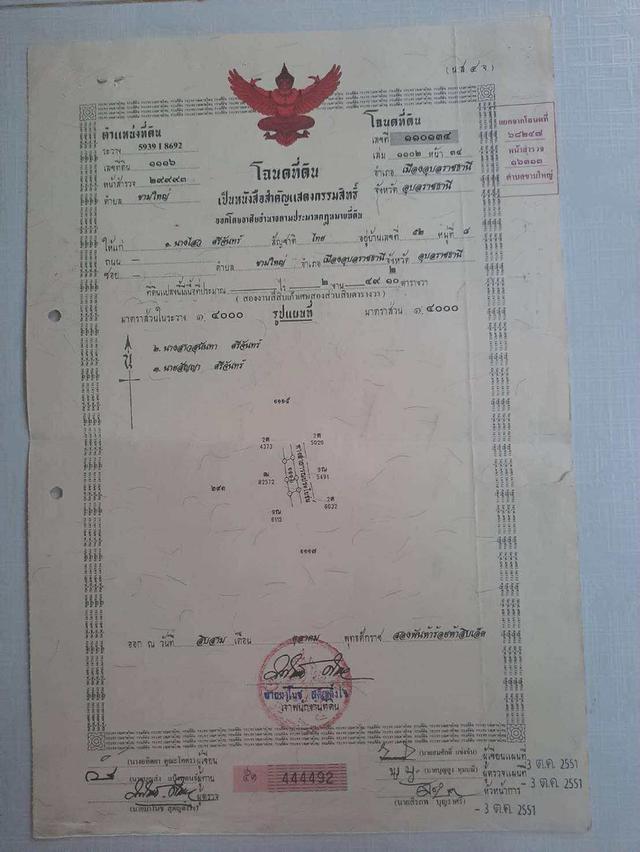 (น.ส. ๔ จ)
ตำแหน่งที่ดิน
ระวาง 5939 I 8692
เลขที่ดิน ๑๑๑๖
หน้าสำรวจ ๒๙๙๙๓
ตำบล ขามใหญ่
โฉนดที่ดิน
เลขที่ ๑๑๐๑๓๔
เล่ม ๑๑๐๒ หน้า ๓๔
อำเภอ เมืองอุบลราชธานี
จังหวัด อุบลราชธานี
แยกจากโฉนดที่
๖๘๒๔๗
หน้าสำรวจ
๑๖๓๑๓
ตำบลขามใหญ่
โฉนดที่ดิน
เป็นหนังสือสำคัญแสดงกรรมสิทธิ์
ออกโดยอาศัยอำนาจตามประมวลกฎหมายที่ดิน
ให้แก่ ๑. นางไสว ศรีจันทร์ สัญชาติ ไทย อยู่บ้านเลขที่ ๕๒ หมู่ที่ ๘
ถนน —
ซอย — ตำบล ขามใหญ่ อำเภอ เมืองอุบลราชธานี จังหวัด อุบลราชธานี
ที่ดินแปลงนี้มีเนื้อที่ประมาณ — ไร่ ๒ งาน ๔๙ ๒/๑๐ ตารางวา
(สองงานสี่สิบเก้าเศษสองส่วนสิบตารางวา)
มาตราส่วนในระวาง ๑:๔๐๐๐ รูปแผนที่ มาตราส่วน ๑:๔๐๐๐
น
๒. นางสาวสุนันทา ศรีจันทร์
๓. นายสัญญา ศรีจันทร์
๑๑๑๕
4373
5020
82572
5491
๒๙๓
6032
๑๑๑๗
ออก ณ วันที่ สิบสาม เดือน ตุลาคม พุทธศักราช สองพันห้าร้อยห้าสิบเอ็ด
เจ้าพนักงานที่ดิน
ผู้เขียน
ผู้ตรวจ
444492
ผู้เขียนแผนที่
ผู้ตรวจแผนที่
หัวหน้าการ
-3 ต.ค. 2551
-3 ต.ค. 2551
-3 ต.ค. 2551